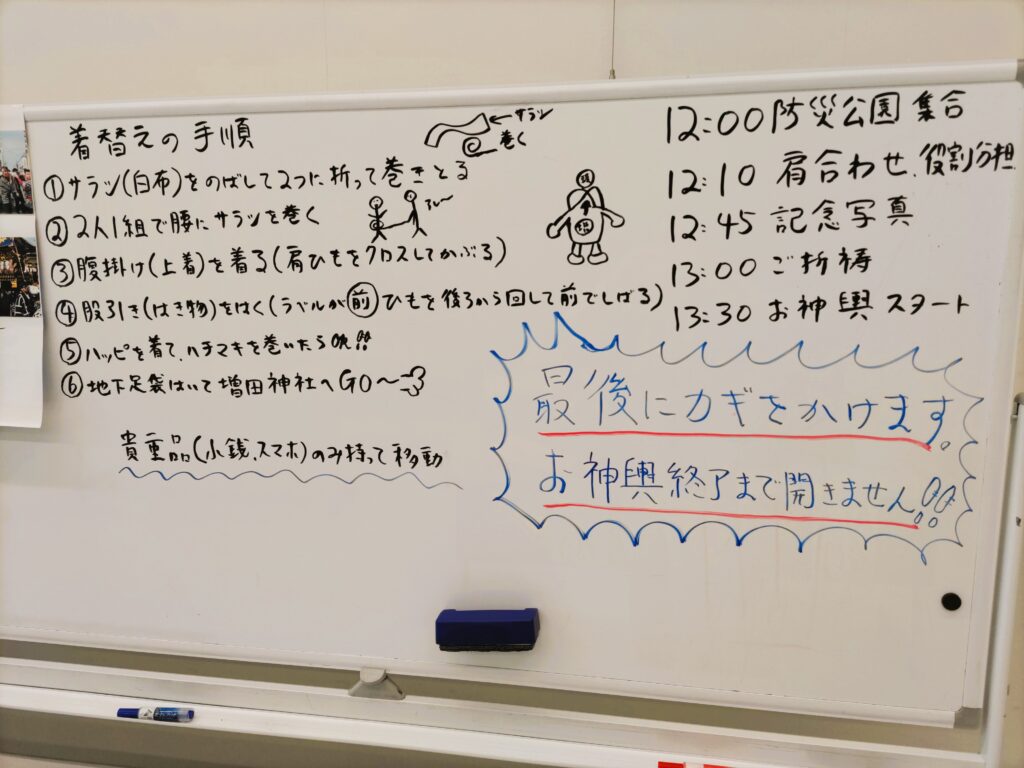 着替えの手順
サラシ
巻く
①サラシ(白布)をのばして2つに折って巻きとる
②2人1組で腰にサラシを巻く
③腹掛け(上着)を着る(肩ひもをクロスしてかぶる)
④股引き(はき物)をはく(ラベルが前 ひもを後ろから回して前でしばる)
⑤ハッピを着て、ハチマキを巻いたらOK!!
⑥地下足袋はいて増田神社へGO〜
貴重品(小銭、スマホ)のみ持って移動
12:00 防災公園 集合
12:10 肩合わせ、役割分担
12:45 記念写真
13:00 ご祈祷
13:30 お神輿スタート
最後にカギをかけます。
お神輿終了まで開きません!!